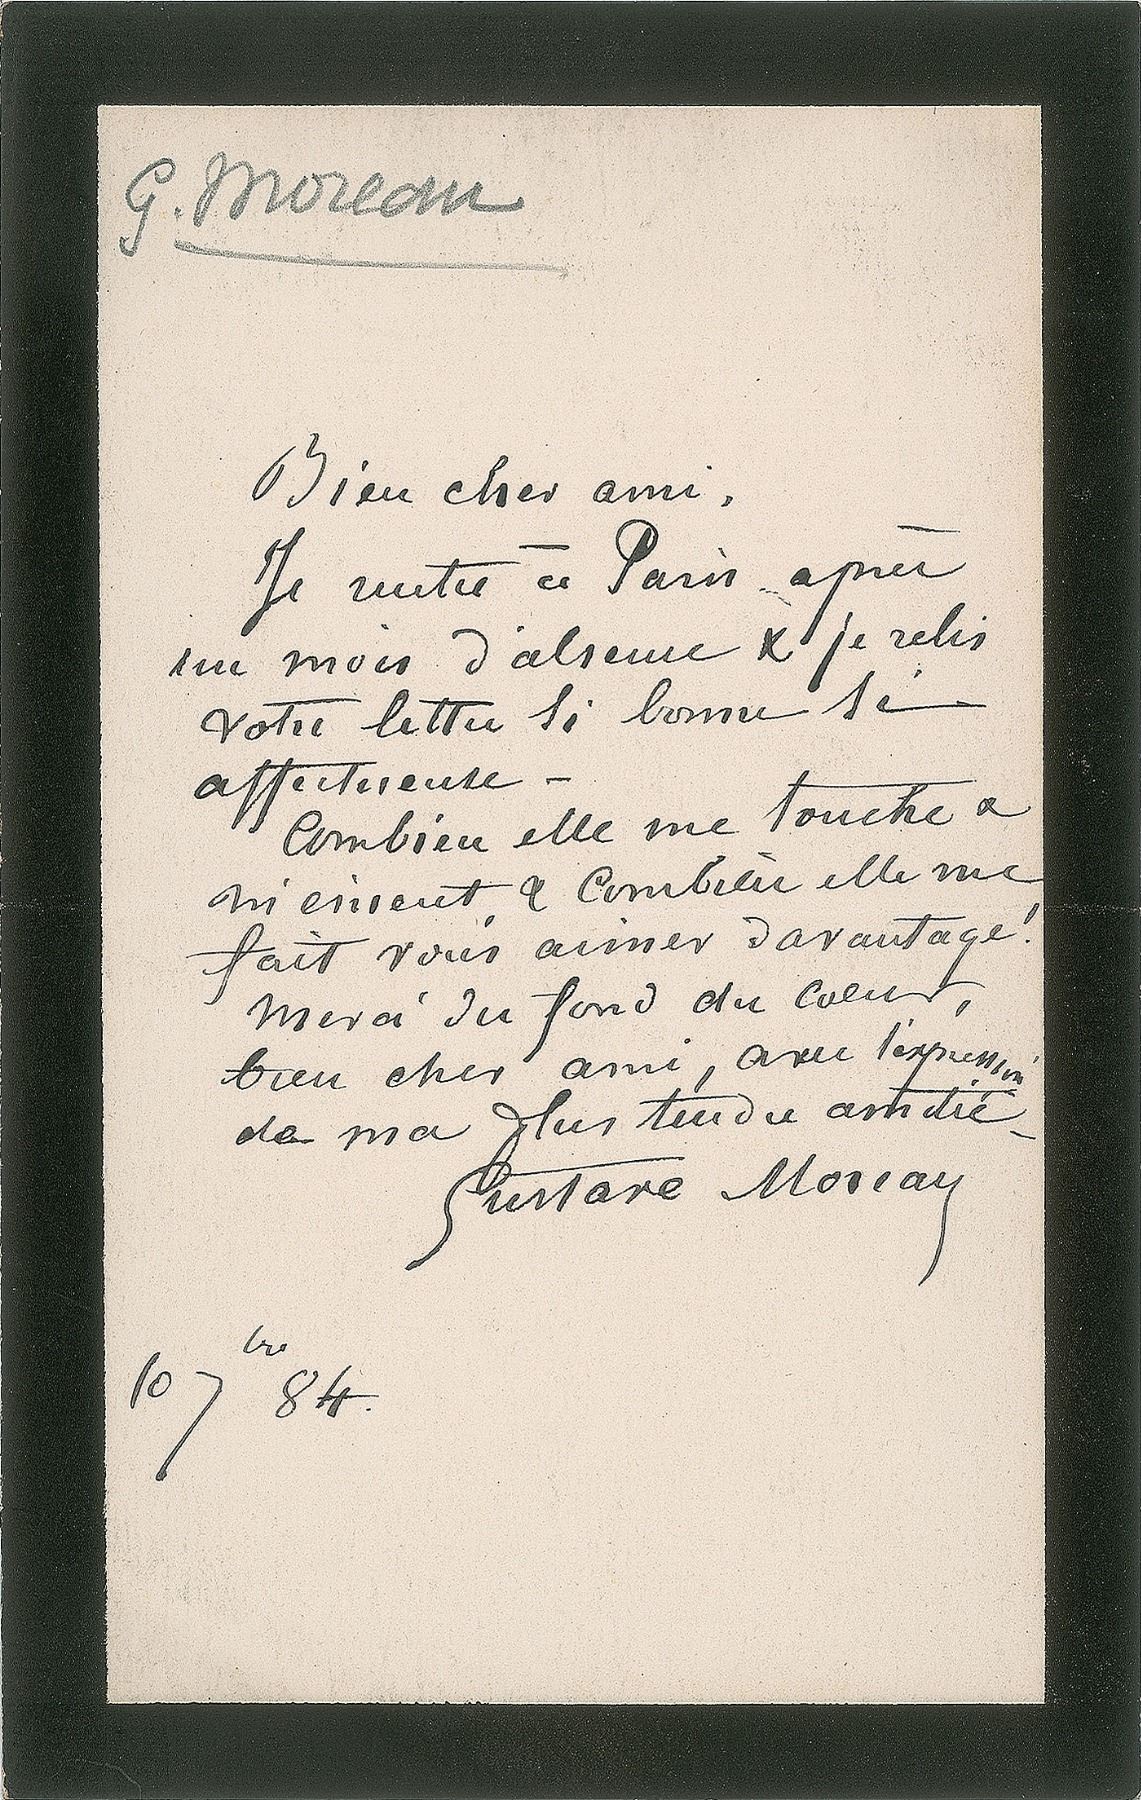 G. Moreau
Bien cher ami,
Je rentre à Paris après
un mois d'absence & je relis
votre lettre si bonne si
affectueuse -
Combien elle me touche &
m'émeut, & combien elle me
fait vous aimer davantage !
Merci du fond du coeur,
bien cher ami, avec l'expression
de ma plus tendre amitié -
Gustave Moreau
10 7bre 84.